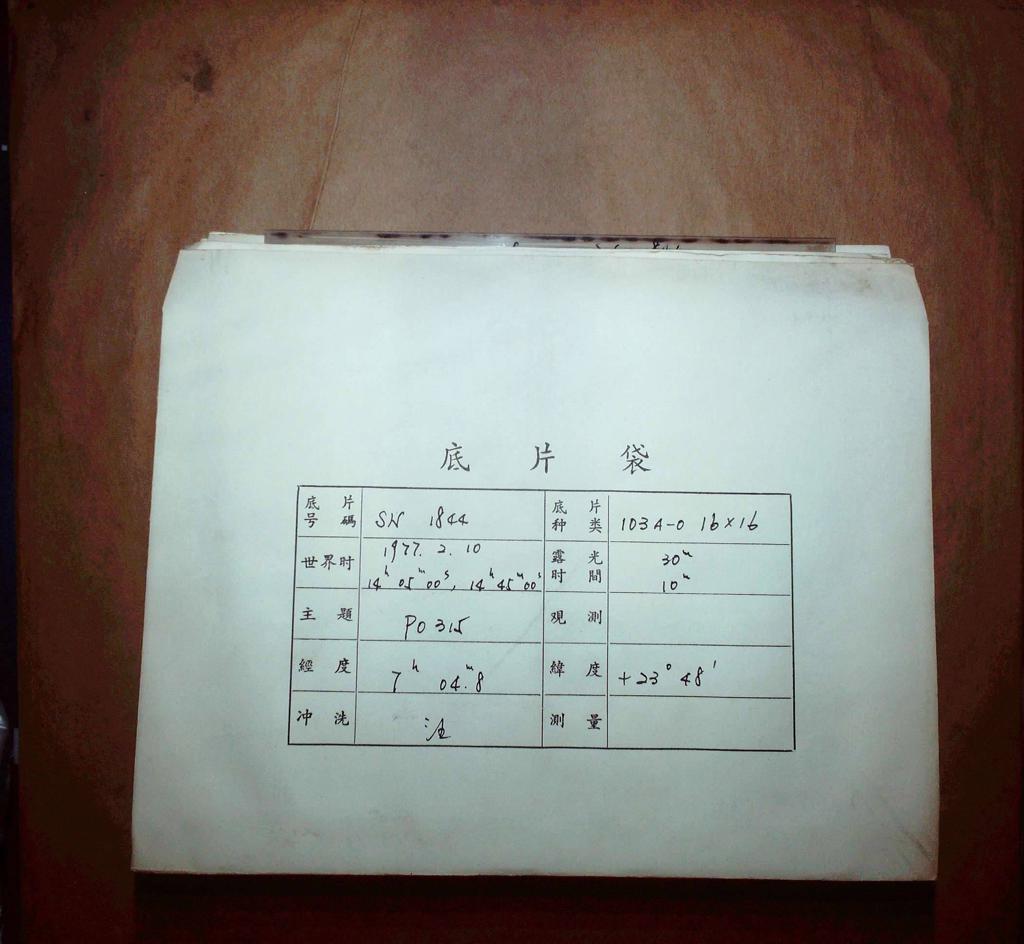 底片袋
底片号碼 SN 1844 底片种类 103A-O 16×16
世界时 1977. 2. 10 14ʰ 05ᵐ 00ˢ, 14ʰ 45ᵐ 00ˢ 露光时間 30ᵐ 10ᵐ
主題 PO 315 观測
經度 7ʰ 04ᵐ.8 緯度 +23° 48′
冲洗 測量